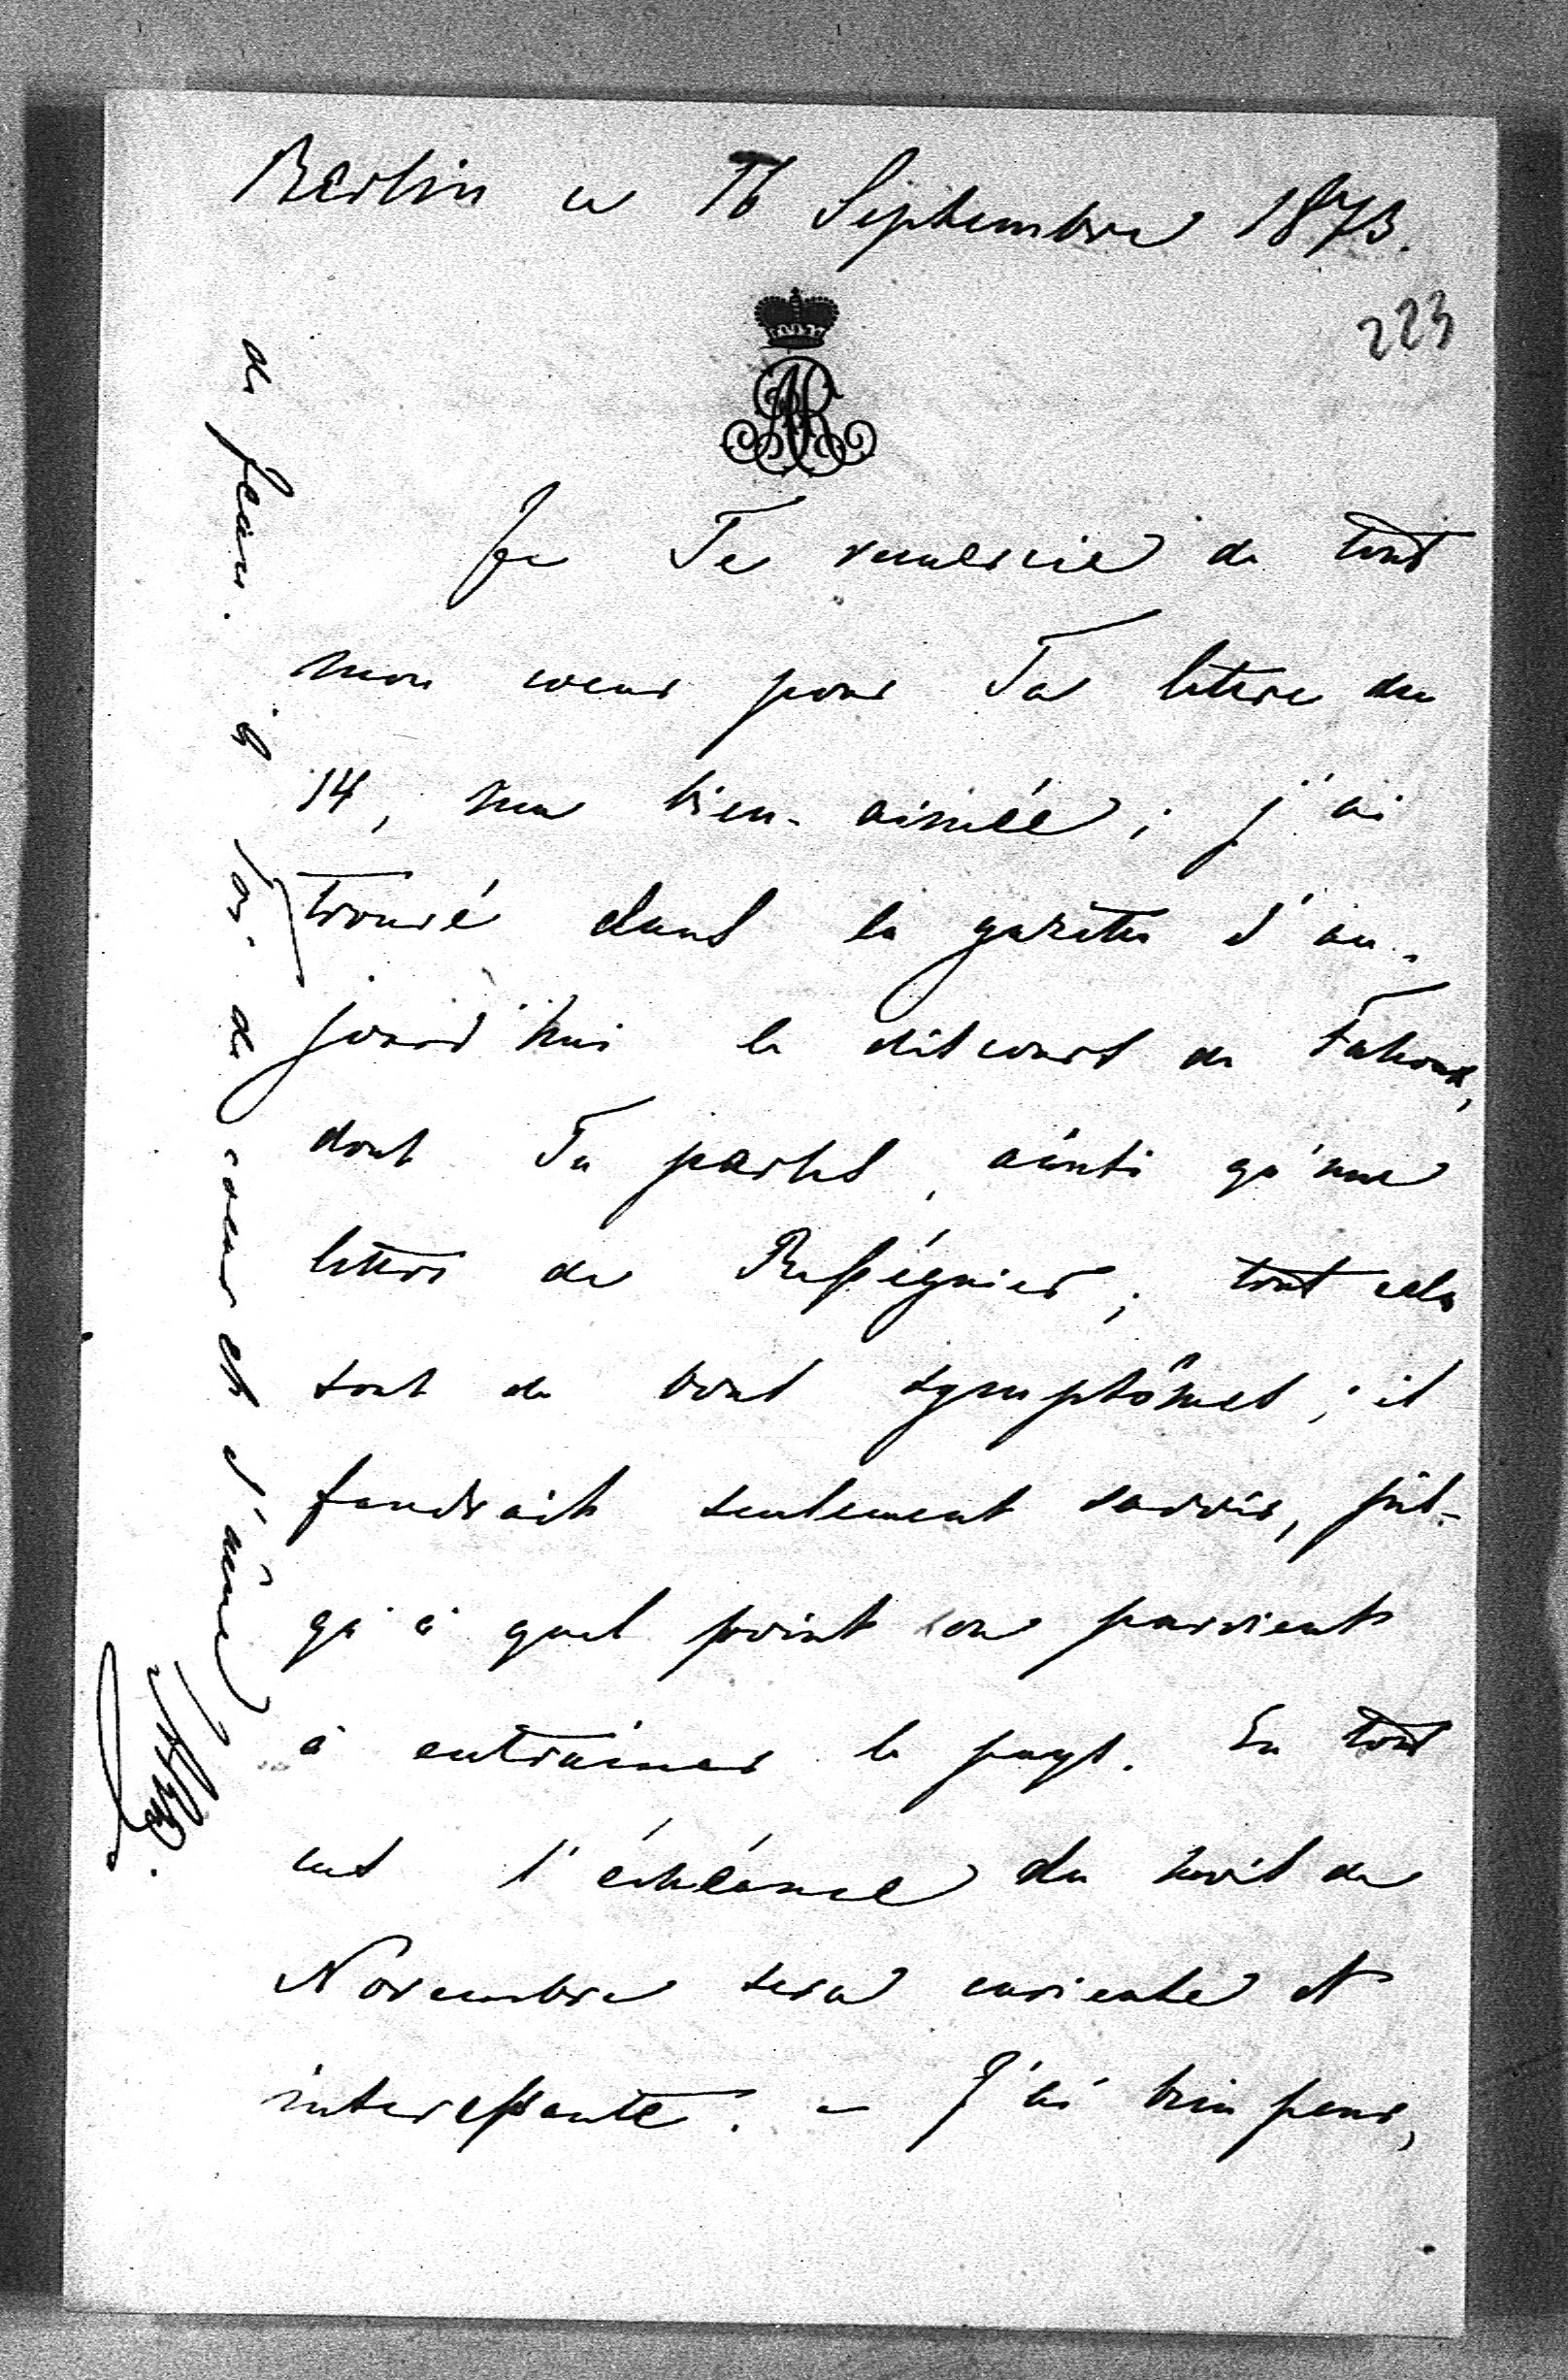 Berlin ce 16 Septembre 1873.
223
Je Te remercie de tout
mon coeur pour Ta lettre du
14, ma bien-aimée; j'ai
trouvé dans la gazette d'au-
jourd'hui le discours de
dont Tu parles, ainsi qu'une
lettre de Rességuier; tout cela
sont de bons symptômes; il
faudrait seulement savoir, jus-
qu'à quel point on parvient
à entrainer le pays. En tout
cas l'échéance du mois de
Novembre sera curieuse et
interessante. – J'ai bien peur,
à Toi de coeur et d'âme